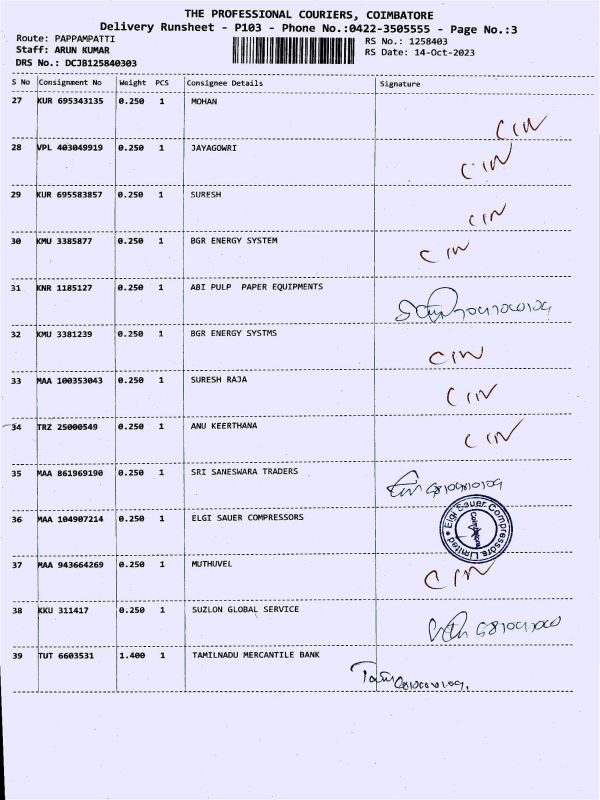 THE PROFESSIONAL COURIERS, COIMBATORE
Delivery Runsheet - P103 - Phone No.:0422-3505555 - Page No.:3
Route: PAPPAMPATTI
RS No.: 1258403
Staff: ARUN KUMAR
RS Date: 14-Oct-2023
DRS No.: DCJB125840303
S No Consignment No Weight PCS Consignee Details Signature
27 KUR 695343135 0.250 1 MOHAN
CIN
28 VPL 403049919 0.250 1 JAYAGOWRI
CIN
29 KUR 695583857 0.250 1 SURESH
CIN
30 KMU 3385877 0.250 1 BGR ENERGY SYSTEM
CIN
31 KNR 1185127 0.250 1 ABI PULP PAPER EQUIPMENTS
32 KMU 3381239 0.250 1 BGR ENERGY SYSTMS
CIN
33 MAA 100353043 0.250 1 SURESH RAJA
CIN
34 TRZ 25000549 0.250 1 ANU KEERTHANA
CIN
35 MAA 861969190 0.250 1 SRI SANESWARA TRADERS
36 MAA 104907214 0.250 1 ELGI SAUER COMPRESSORS
Elgi Sauer Compressors Limited
37 MAA 943664269 0.250 1 MUTHUVEL
CIN
38 KKU 311417 0.250 1 SUZLON GLOBAL SERVICE
39 TUT 6603531 1.400 1 TAMILNADU MERCANTILE BANK